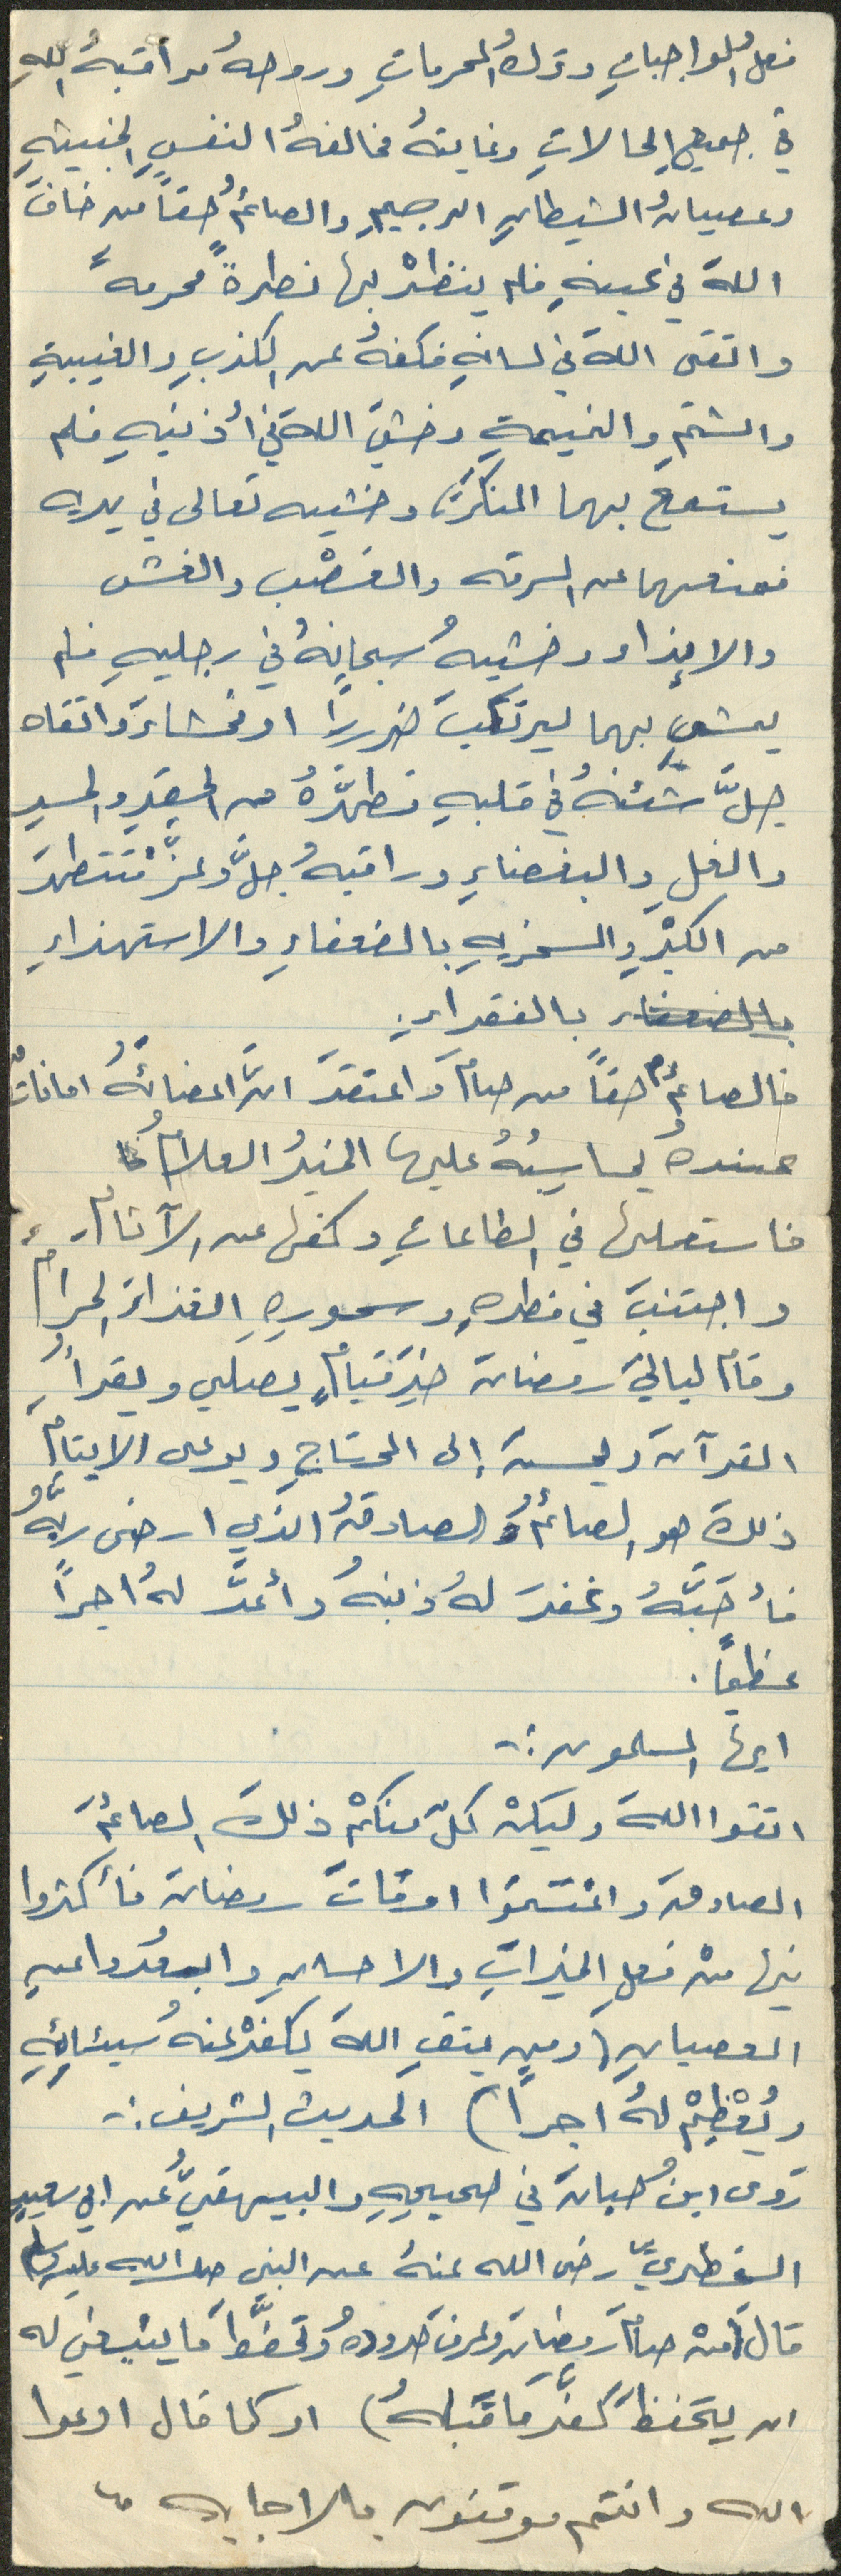 فعلُ الواجباتِ وتركُ المحرماتِ وروحهُ مراقبةُ اللهِ
في جميعِ الحالاتِ وغايتهُ مخالفةُ النفسِ الخبيثهِ
وعصيانُ الشيطانِ الرجيمِ والصائمُ حقاً من خافَ
اللهَ في عينيهِ فلم ينظرْ بها نظرةً محرمهً
واتقى اللهَ في لسانهِ فكفهُ عن الكذبِ والغيبةِ
والشتمِ والنميمةِ وخشيَ اللهَ في أذنيهِ فلم
يستمع بهما المنكرَ وخشيه تعالى في يديه
فمنعهما عن السرقه والغصْب والغش
والايذاء وخشيهُ سبحانهُ في رجليهِ فلم
يمشِ بهما ليرتكبَ ضرراً او فحشاءَ واتقاه
جلَّ شأنهُ في قلبهِ فطهَّرهُ من الحقدِ والحسدِ
والغلِ والبغضاءِ وراقبهُ جلَّ وعزَّ فتطهرَ
من الكبْرِ والسخريهِ بالضعفاءِ والاستهزاءِ
بالضعفاء بالفقراءِ.
فالصائمُ حقاً من صامَ واعتقدَ انَّ اعضائَهُ اماناتٌ
عندهُ يحاسبُهُ عليها الخبيرُ العلامُ
فاستعملها في الطاعاتِ وكفها عن الآثامِ.
واجتنبَ في فطرهِ وسحورهِ الغذاءَ الحرامَ
وقامَ لياليَ رمضانَ خيرَ قيامٍ يصلي ويقرأُ
القرآنَ ويحسنَ إلى المحتاجِ ويرعى الايتامَ
ذلكَ هو الصائمُ الصادقُ الذي ارضى ربَّهُ
فأحَبَّهُ وغفرَ لهُ ذنبهُ وأعدَّ لهُ اجراً
عظيماً.
ايها المسلمون :-
اتقوا اللهَ وليكنْ كلٌ منكمْ ذلكَ الصائمَ
الصادقَ واغتنموا اوقاتَ رمضانَ فأكثروا
فيها منْ فعلِ الخيراتِ والاحسانِ وابعُدوا عنِ
العصيانِ (ومن يتقِ اللهَ يكفرْ عنهُ سيئاتِهِ
ويُعْظِمْ لهُ اجراً) الحديث الشريف :-
رَوى ابنُ حبانَ في صحيحِهِ والبيهقيُّ عن ابي سعيدٍ
الخدريِّ رضي الله عنهُ عن النبي صلى الله عليه وسلم
قالَ (منْ صامَ رمضانَ وعرفَ حدودهُ وتحفَّظَ مَا ينبغي له
ان يتحفظَ كفَّرَ مَا قَبلهُ) او كما قال ادعوا
الله وانتم موقنون بالاجابه